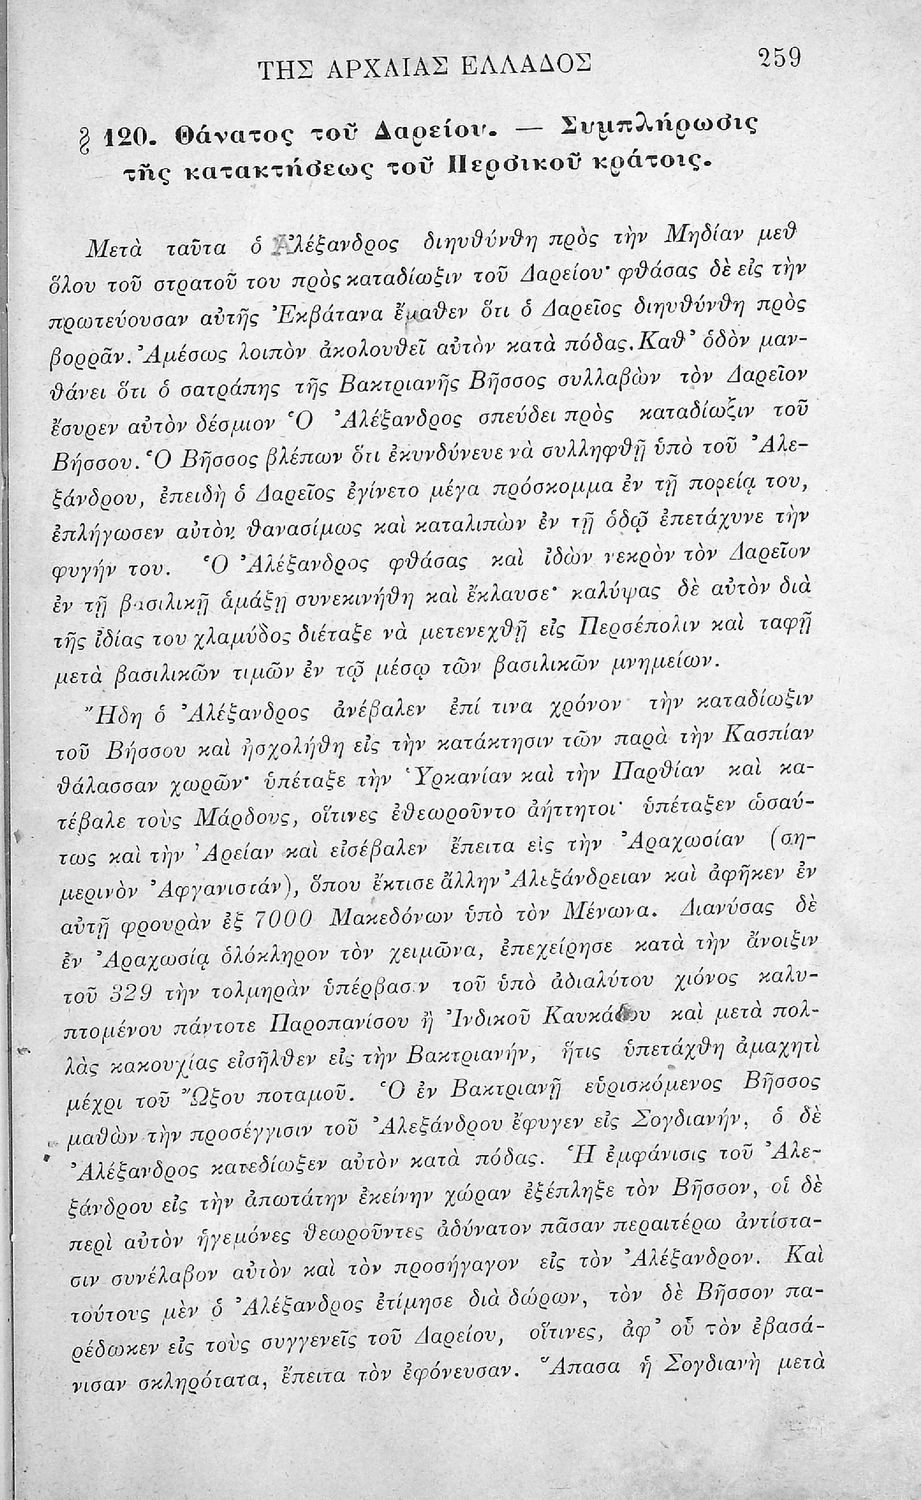 ΤΗΣ ΑΡΧΑΙΑΣ ΕΛΛΑΔΟΣ 259
§ 120. Θάνατος τοῦ Δαρείου. — Συμπλήρωσις
τῆς κατακτήσεως τοῦ Περσικοῦ κράτοις.
Μετὰ ταῦτα ὁ Ἀλέξανδρος διηυθύνθη πρὸς τὴν Μηδίαν μεθ
ὅλου τοῦ στρατοῦ του πρὸς καταδίωξιν τοῦ Δαρείου· φθάσας δὲ εἰς τὴν
πρωτεύουσαν αὐτῆς Ἐκβάτανα ἔμαθεν ὅτι ὁ Δαρεῖος διηυθύνθη πρὸς
βορρᾶν. Ἀμέσως λοιπὸν ἀκολουθεῖ αὐτὸν κατὰ πόδας. Καθ' ὁδὸν μαν-
θάνει ὅτι ὁ σατράπης τῆς Βακτριανῆς Βῆσσος συλλαβὼν τὸν Δαρεῖον
ἔσυρεν αὐτὸν δέσμιον Ὁ Ἀλέξανδρος σπεύδει πρὸς καταδίωξιν τοῦ
Βήσσου. Ὁ Βῆσσος βλέπων ὅτι ἐκινδύνευε νὰ συλληφθῇ ὑπὸ τοῦ Ἀλε-
ξάνδρου, ἐπειδὴ ὁ Δαρεῖος ἐγίνετο μέγα πρόσκομμα ἐν τῇ πορείᾳ του,
ἐπλήγωσεν αὐτὸν θανασίμως καὶ καταλιπὼν ἐν τῇ ὁδῷ ἐπετάχυνε τὴν
φυγήν του. Ὁ Ἀλέξανδρος φθάσας καὶ ἰδὼν νεκρὸν τὸν Δαρεῖον
ἐν τῇ βασιλικῇ ἁμάξῃ συνεκινήθη καὶ ἔκλαυσε· καλύψας δὲ αὐτὸν διὰ
τῆς ἰδίας του χλαμύδος διέταξε νὰ μετενεχθῇ εἰς Περσέπολιν καὶ ταφῇ
μετὰ βασιλικῶν τιμῶν ἐν τῷ μέσῳ τῶν βασιλικῶν μνημείων.
Ἤδη ὁ Ἀλέξανδρος ἀνέβαλεν ἐπί τινα χρόνον τὴν καταδίωξιν
τοῦ Βήσσου καὶ ἠσχολήθη εἰς τὴν κατάκτησιν τῶν παρὰ τὴν Κασπίαν
θάλασσαν χωρῶν· ὑπέταξε τὴν Ὑρκανίαν καὶ τὴν Παρθίαν καὶ κα-
τέβαλε τοὺς Μάρδους, οἵτινες ἐθεωροῦντο ἀήττητοι· ὑπέταξεν ὡσαύ-
τως καὶ τὴν Ἀρείαν καὶ εἰσέβαλεν ἔπειτα εἰς τὴν Ἀραχωσίαν (ση-
μερινὸν Ἀφγανιστάν), ὅπου ἔκτισε ἄλλην Ἀλεξάνδρειαν καὶ ἀφῆκεν ἐν
αὐτῇ φρουρὰν ἐξ 7000 Μακεδόνων ὑπὸ τὸν Μένωνα. Διανύσας δὲ
ἐν Ἀραχωσίᾳ ὁλόκληρον τὸν χειμῶνα, ἐπεχείρησε κατὰ τὴν ἄνοιξιν
τοῦ 329 τὴν τολμηρὰν ὑπέρβασιν τοῦ ὑπὸ ἀδιαλύτου χιόνος καλυ-
πτομένου πάντοτε Παροπανίσου ἢ Ἰνδικοῦ Καυκάσου καὶ μετὰ πολ-
λὰς κακουχίας εἰσῆλθεν εἰς τὴν Βακτριανήν, ἥτις ὑπετάχθη ἀμαχητὶ
μέχρι τοῦ Ὤξου ποταμοῦ. Ὁ ἐν Βακτριανῇ εὑρισκόμενος Βῆσσος
μαθὼν τὴν προσέγγισιν τοῦ Ἀλεξάνδρου ἔφυγεν εἰς Σογδιανήν, ὁ δὲ
Ἀλέξανδρος κατεδίωξεν αὐτὸν κατὰ πόδας. Ἡ ἐμφάνισις τοῦ Ἀλε-
ξάνδρου εἰς τὴν ἀπωτάτην ἐκείνην χώραν ἐξέπληξε τὸν Βῆσσον, οἱ δὲ
περὶ αὐτὸν ἡγεμόνες θεωροῦντες ἀδύνατον πᾶσαν περαιτέρω ἀντίστα-
σιν συνέλαβον αὐτὸν καὶ τὸν προσήγαγον εἰς τὸν Ἀλέξανδρον. Καὶ
τούτους μὲν ὁ Ἀλέξανδρος ἐτίμησε διὰ δώρων, τὸν δὲ Βῆσσον πα-
ρέδωκεν εἰς τοὺς συγγενεῖς τοῦ Δαρείου, οἵτινες, ἀφ' οὗ τὸν ἐβασά-
νισαν σκληρότατα, ἔπειτα τὸν ἐφόνευσαν. Ἅπασα ἡ Σογδιανὴ μετὰ